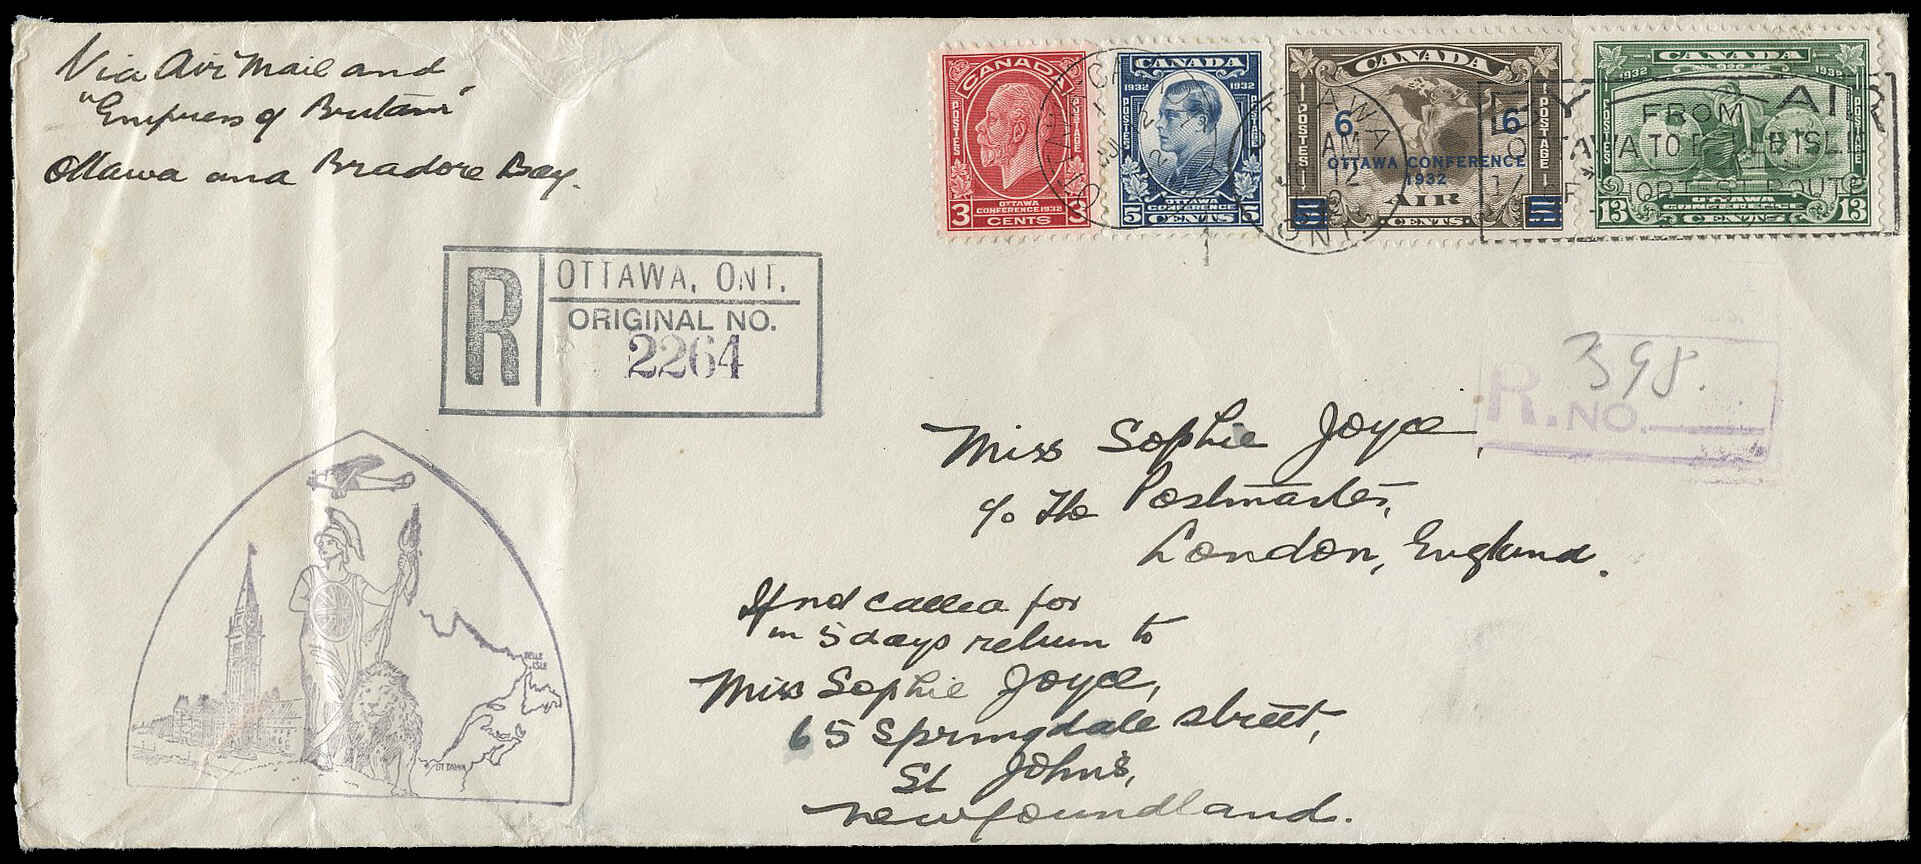 Via Air Mail and
"Empress of Britain"
Ottawa and Bradore Bay.
CANADA
POSTES
POSTAGE
3 OTTAWA CONFERENCE 1932 3
CENTS
CANADA
1932 1932
POSTES
POSTAGE
OTTAWA CONFERENCE
5 CENTS 5
CANADA
POSTES
POSTAGE
6 6
OTTAWA CONFERENCE
1932
AIR
CENTS
CANADA
1932 1932
POSTES
POSTAGE
OTTAWA CONFERENCE
13 CENTS 13
OTTAWA
AM
ONT.
BY AIR
FROM
OTTAWA TO BELLE ISLE
SHORTEST ROUTE
R
OTTAWA, ONT.
ORIGINAL NO.
2264
R. NO. 398.
Miss Sophie Joyce,
c/o The Postmaster,
London, England.
If not called for
in 5 days return to
Miss Sophie Joyce,
65 Springdale street,
St John's,
Newfoundland.
BELLE
ISLE
OTTAWA